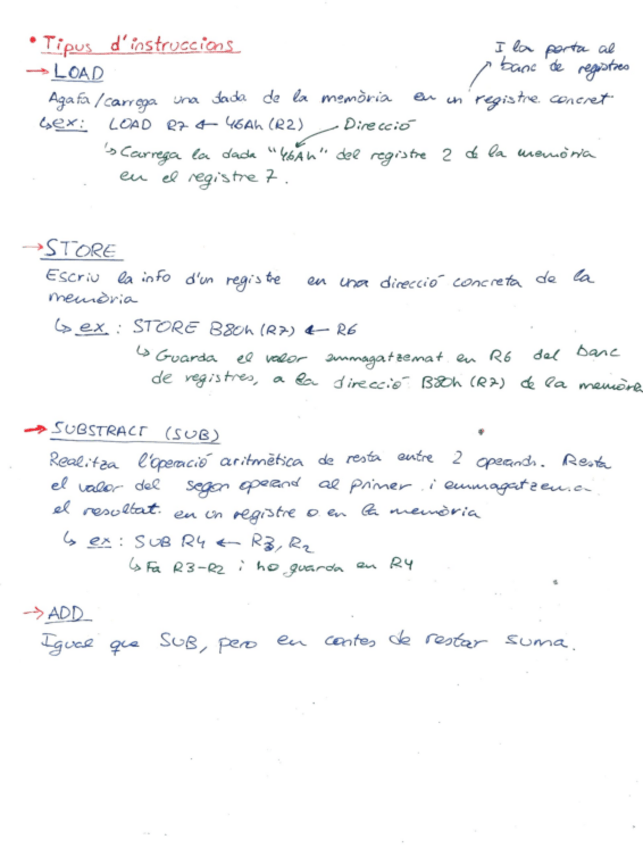 • Tipus d'instruccions
I la porta al
banc de registres
→ LOAD
Agafa/carrega una dada de la memòria en un registre concret
↳ ex: LOAD R7 ← 46Ah (R2) Direcció
↳ Carrega la dada "46Ah" del registre 2 de la memòria
en el registre 7.
→ STORE
Escriu la info d'un registre en una direcció concreta de la
memòria
↳ ex: STORE B80h (R7) ← R6
↳ Guarda el valor emmagatzemat en R6 del banc
de registres, a la direcció B80h (R7) de la memòria
→ SUBSTRACT (SUB)
Realitza l'operació aritmètica de resta entre 2 operands. Resta
el valor del segon operand al primer i emmagatzema
el resultat en un registre o en la memòria
↳ ex: SUB R4 ← R3, R2
↳ Fa R3-R2 i ho guarda en R4
→ ADD
Igual que SUB, pero en contes de restar suma.